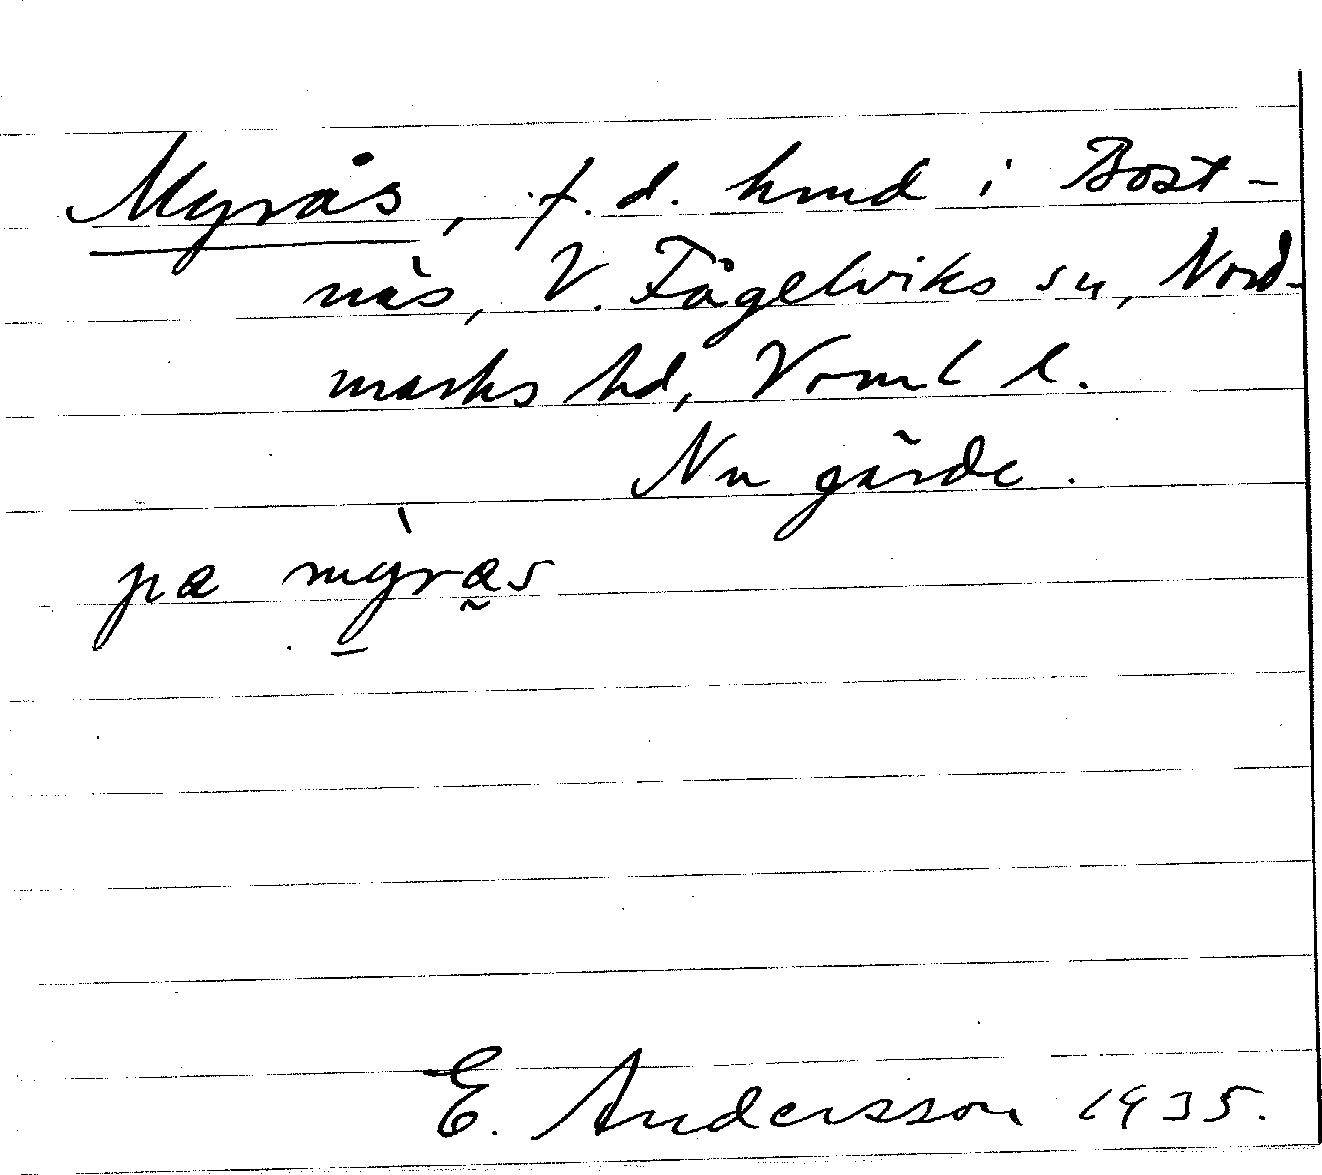 Myrås, f.d. hmd i Bost-
näs, V. Fågelviks sn, Nord-
marks hd, Vrml l.
Nu gärde.
pa myràs
E. Andersson 1935.